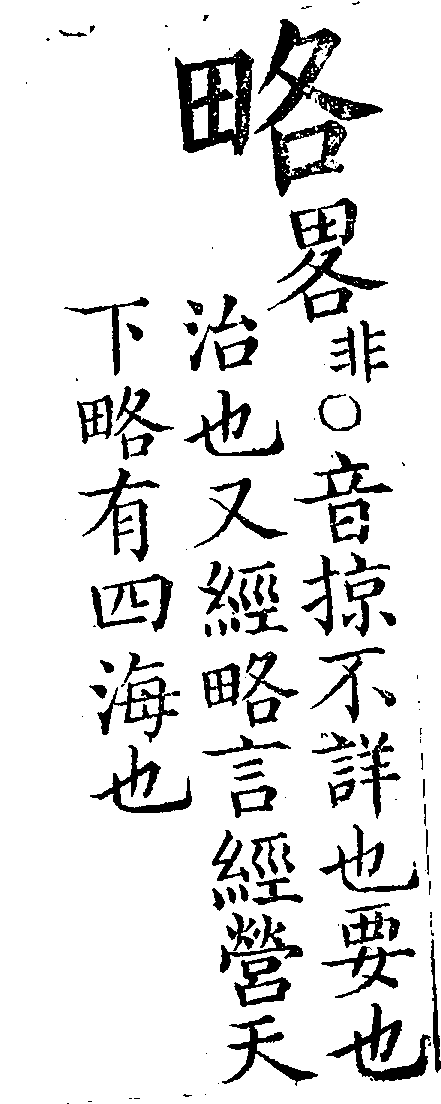 略
畧非○音掠不詳也要也
治也又經略言經營天
下略有四海也